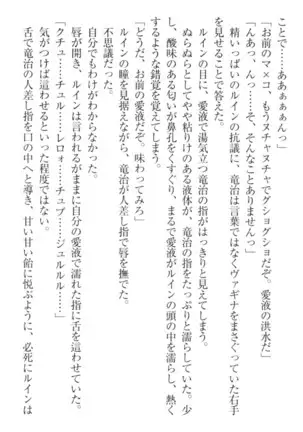 ことで……ああぁぁんっ」
「お前のマ×コ、もうヌチャヌチャでグショグショだぞ。愛液の洪水だ」
「んあっ、んっ……そ、そんなことありませんっ」
精いっぱいのルインの抗議に、竜治は言葉ではなくヴァギナをまさぐっていた右手
を見せることで答えた。
ルインの目に、愛液で湯気立つ竜治の指がはっきりと見えてしまう。
ぬらぬらとしてやや粘りけのある液体が、竜治の指をたっぷりと濡らしていた。少
し、酸味のある匂いが鼻孔をくすぐり、まるで愛液がルインの頭の中を濡らし、熱く
するような錯覚を覚えてしまう。
「どうだ、お前の愛液だ。味わってみろ」
ルインの瞳を見据えながら、竜治が人差し指で唇を撫でた。
不思議だった。
自分でもわけがわからなかった。
唇が開き、ルインは言われるがままに自分の愛液で濡れた指に舌を這わせていた。
「クチュ……チュル……レロォ……チュプ……ジュルルル……」
気がつけば這わせるといった程度ではない。
舌先で竜治の人差し指を口の中へと導き、甘い甘い飴に悦ぶように、必死にルインは